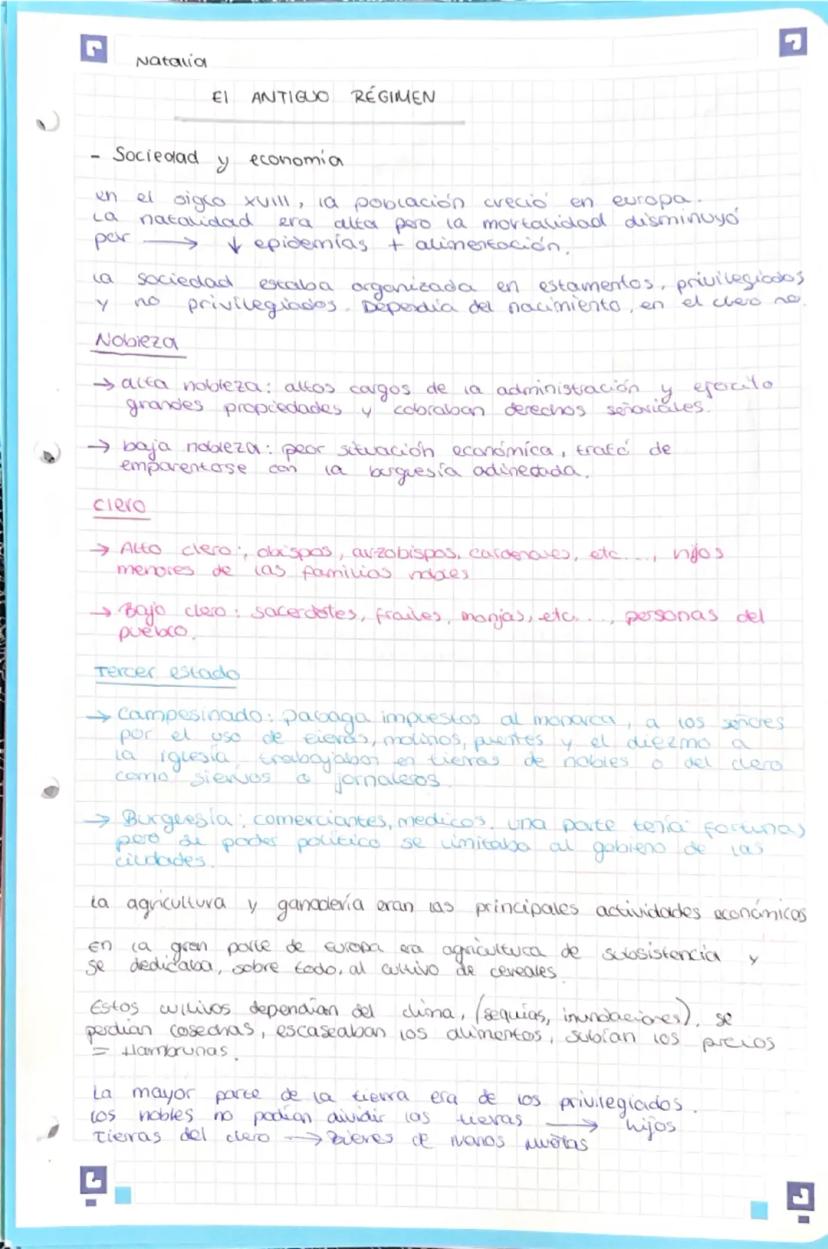 Natalia
El ANTIGUO RÉGIMEN
- Sociedad y economía
en el siglo XVIII, la población creció en europa.
La natalidad era alta pero la mortalidad disminuyó
por → ↓ epidemías + alimentación.
la sociedad estaba organizada en estamentos, privilegiados
y no privilegiados. Dependía del nacimiento, en el clero no.
Nobleza
→ alta nobleza: altos cargos de la administración y ejercito
grandes propiedades y cobraban derechos señoriales.
→ baja nobleza: peor situación económica, trató de
emparentase con la burguesía adinerada.
Clero
→ Alto clero:, obispos, arzobispos, cardenales, etc..., hijos
menores de las familias nobles
→ Bajo clero: sacerdotes, frailes, monjas, etc..., personas del
pueblo.
Tercer estado
→ Campesinado: pagaga impuestos al monarca, a los señores
por el uso de tierras, molinos, puentes y el diezmo a
la iglesia, trabajaban en tierras de nobles o del clero
como siervos o jornaleros.
→ Burguesía: comerciantes, medicos. una parte tenía fortunas
pero su poder político se limitaba al gobierno de las
ciudades.
La agricultura y ganadería eran las principales actividades económicas
En la gran parte de europa era agricultura de subsistencia y
se dedicaba, sobre todo, al cultivo de cereales.
Estos cultivos dependían del clima, (sequías, inundaciones). se
perdían cosechas, escaseaban los alimentos, subían los precios
= Hambrunas.
La mayor parte de la tierra era de los privilegiados.
los nobles no podían dividir las tierras → hijos
Tierras del clero → Bienes de manos muertas